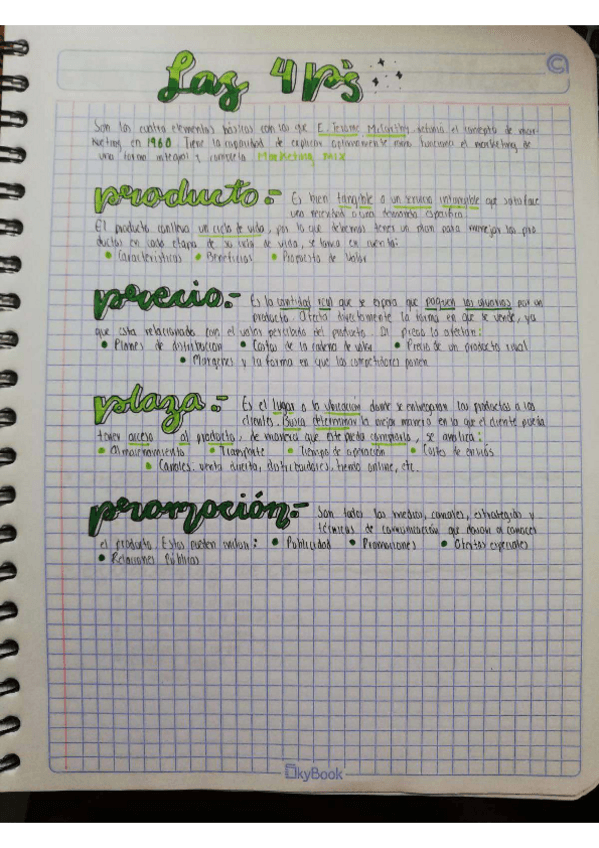 Las 4 P's
Son los cuatro elementos básicos con los que E. Jerome McCarthy definió el concepto de mar-
keting en 1960. Tiene la capacidad de explicar óptimamente como funciona el marketing de
una forma integral y completa Marketing mix
producto.- Es bien tangible o un servicio intangible que satisface
una necesidad o una demanda específica.
El producto conlleva un ciclo de vida, por lo que debemos tener un plan para manejar los pro
ductos en cada etapa de su ciclo de vida, se toma en cuenta:
• Características • Beneficios • Propuesta de Valor
precio.- Es la cantidad real que se espera que paguen los usuarios por un
producto. Afecta directamente la forma en que se vende, ya
que esta relacionado con el valor percibido del producto. Al precio lo afectan:
• Planes de distribución • Costos de la cadena de valor • Precio de un producto rival
• Margenes y la forma en que los competidores ponen
plaza.- Es el lugar o la ubicación donde se entregaran los productos a los
clientes. Busca determinar la mejor manera en la que el cliente pueda
tener acceso al producto, de manera que este pueda comprarlo, se analiza:
• Almacenamiento • Transporte • Tiempo de operación • Costes de envíos
• Canales: venta directa, distribuidores, tienda online, etc.
promoción.- Son todos los medios, canales, estrategias y
técnicas de comunicación que dason al conocer
el producto. Estos pueden incluir: • Publicidad • Promociones • Ofertas especiales
• Relaciones Públicas
SkyBook